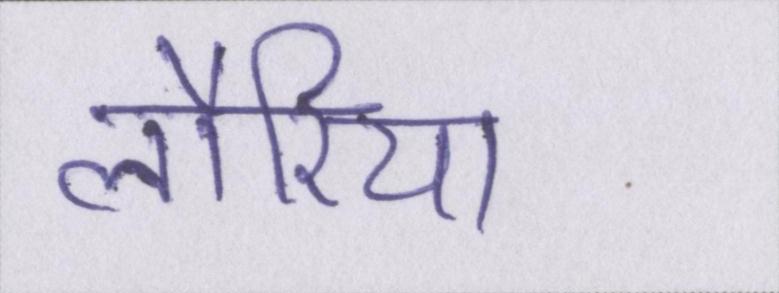 लौरिया